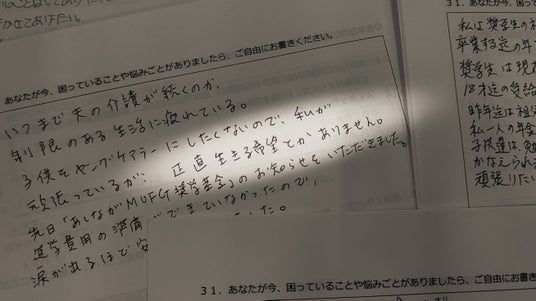 してあげたい。
あなたが今、困っていることや悩みごとがありましたら、ご自由にお書きください。
いつまで夫の介護が続くのか、
制限のある生活に疲れている。
子供をヤングケアラーにしたくないので、私が
頑張っているが、正直生きる希望とかありません。
先日「あしながMUFG奨学基金」のお知らせをいただきました。
進学費用の準備ができていなかったので、
涙があるほど安
した。
31．あなたが今、
私は奨学生の祖
卒業指定の年
奨学生は現在
18才迄の受給
昨年迄は祖父
私一人の年金
子供達は、勉
かなえられ
頑張りたい
31．あなたが今、困っていることや悩みごとがありましたら、ご自由にお書きくだ